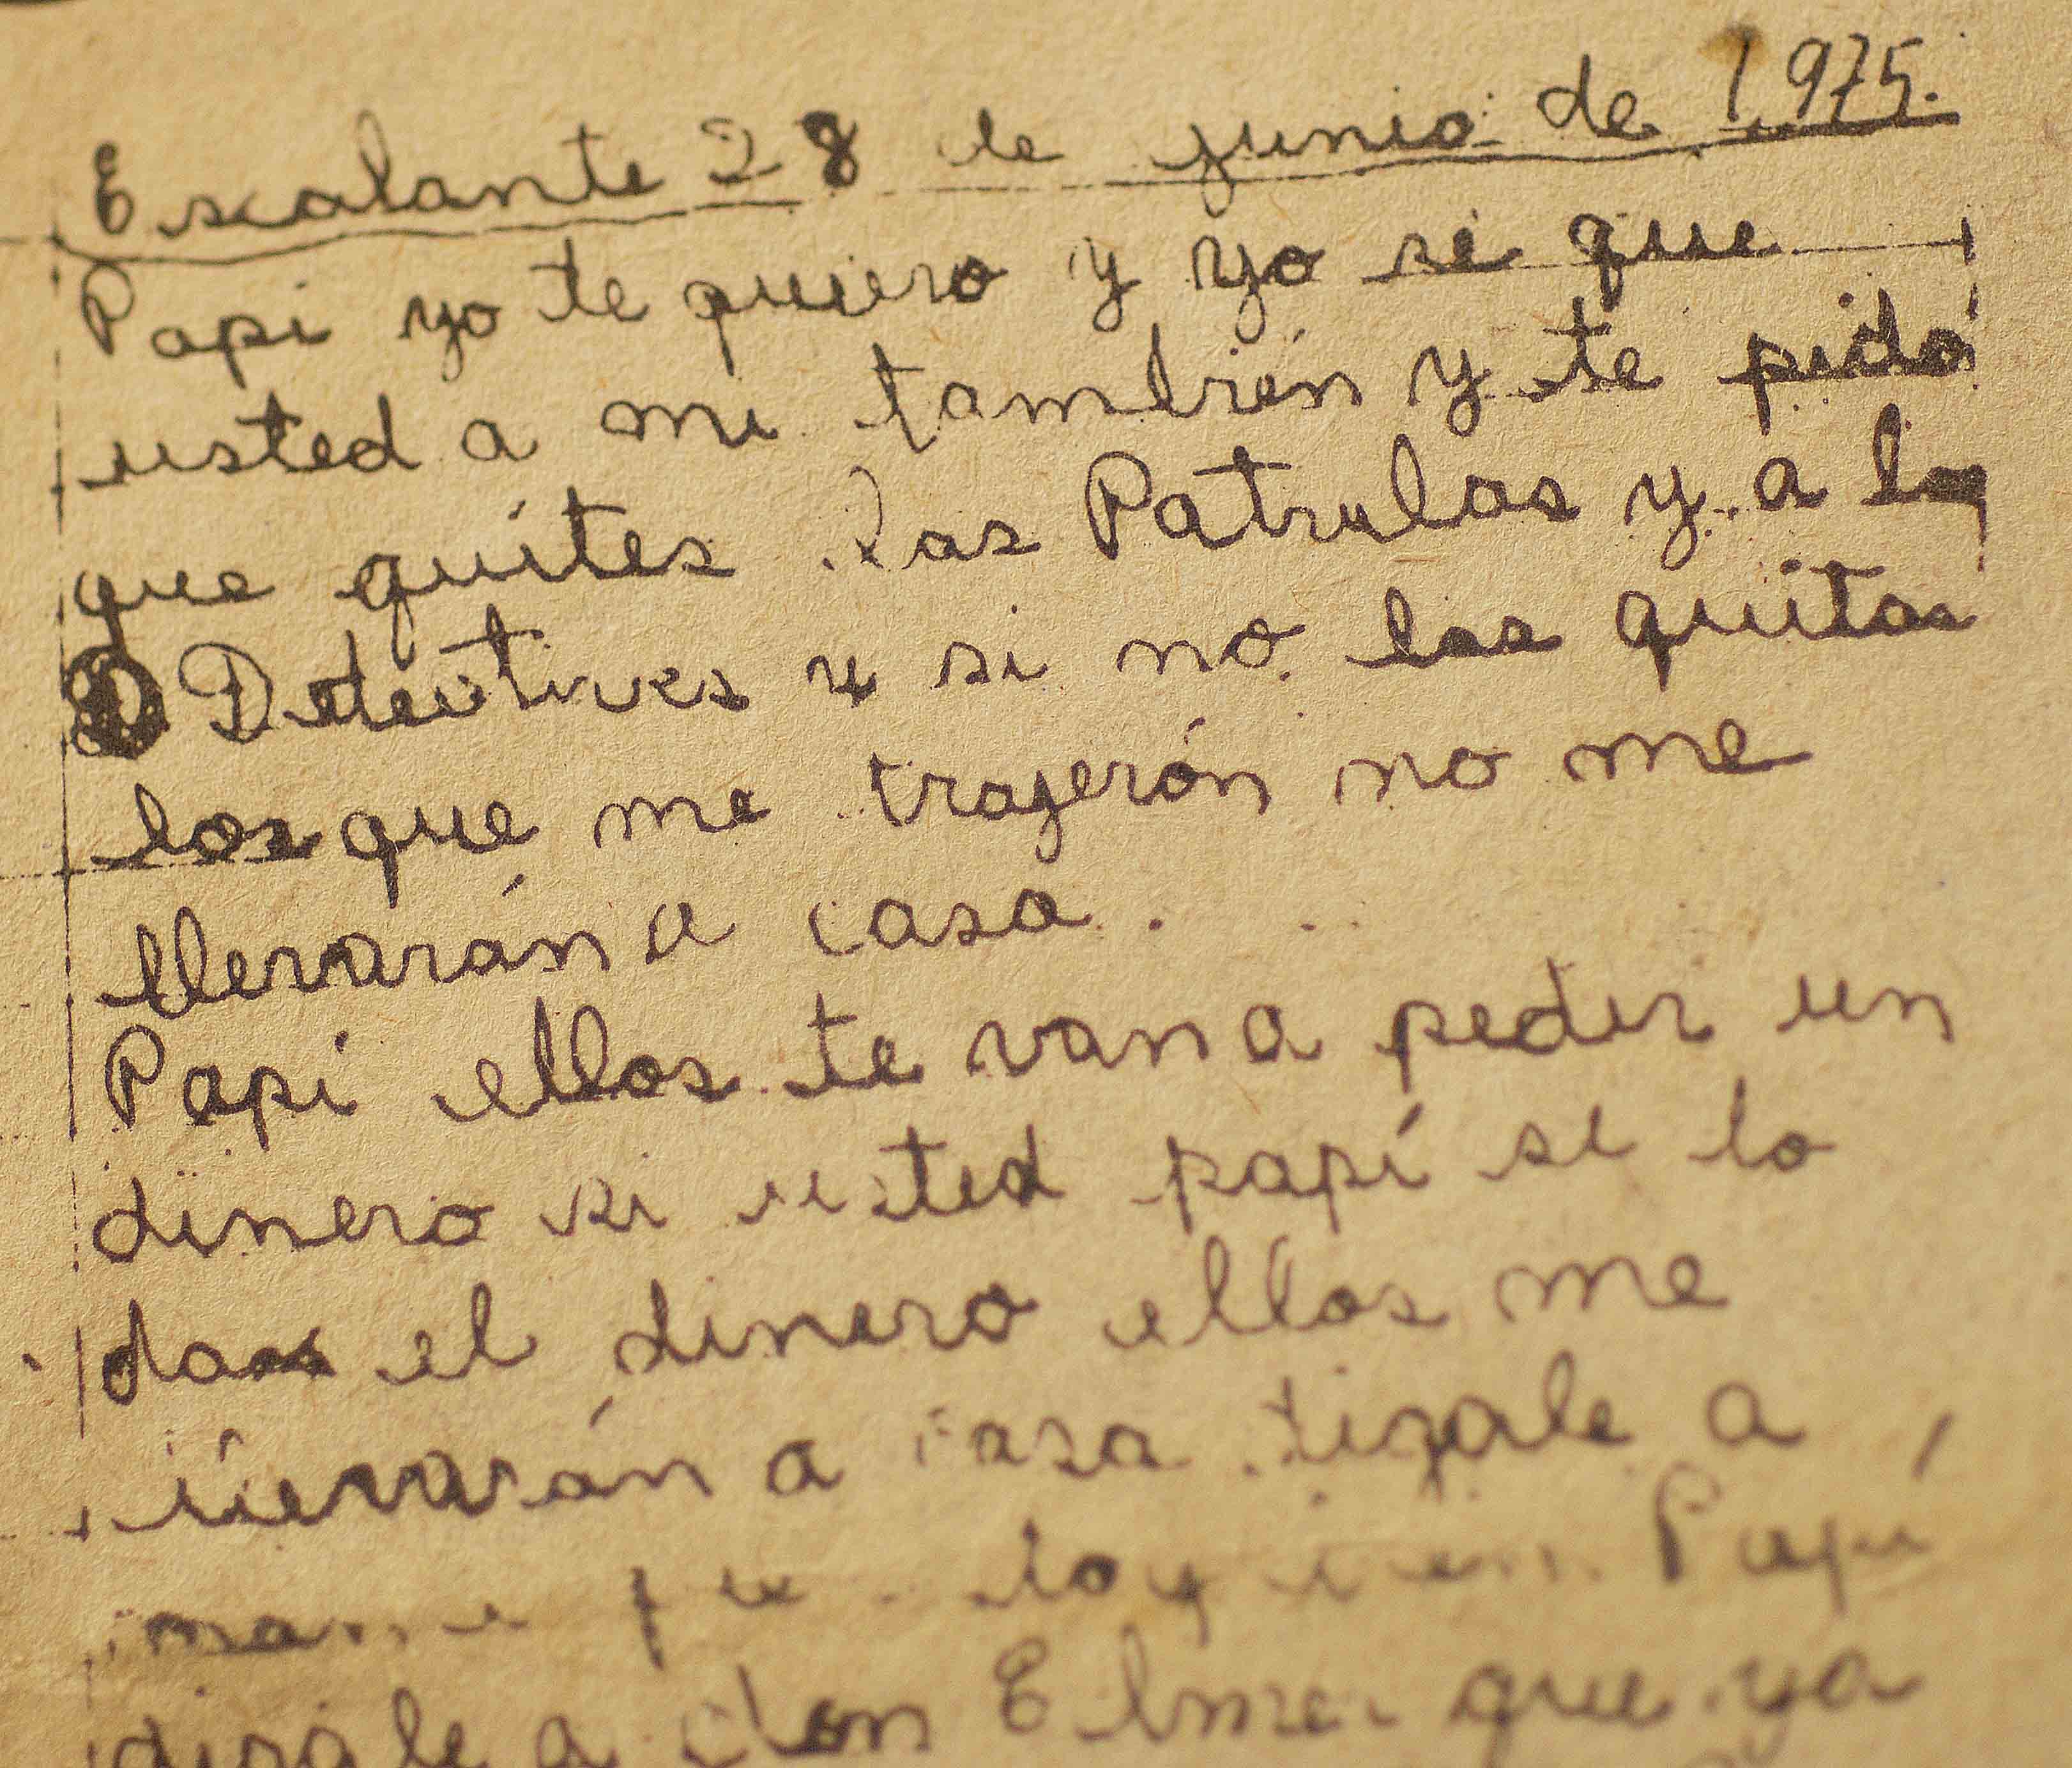 Escalante 28 de junio de 1,975.
Papi yo te quiero y yo sé que
usted a mi tambien y te pido
que quites las Patrulas y a los
Detectives y si no los quitas
los que me trajerón no me
llevarán a casa.
Papi ellos te van a pedir un
dinero si usted papi se lo
das el dinero ellos me
llevarán a casa digale a
Papi
digale a don Elmer que ya